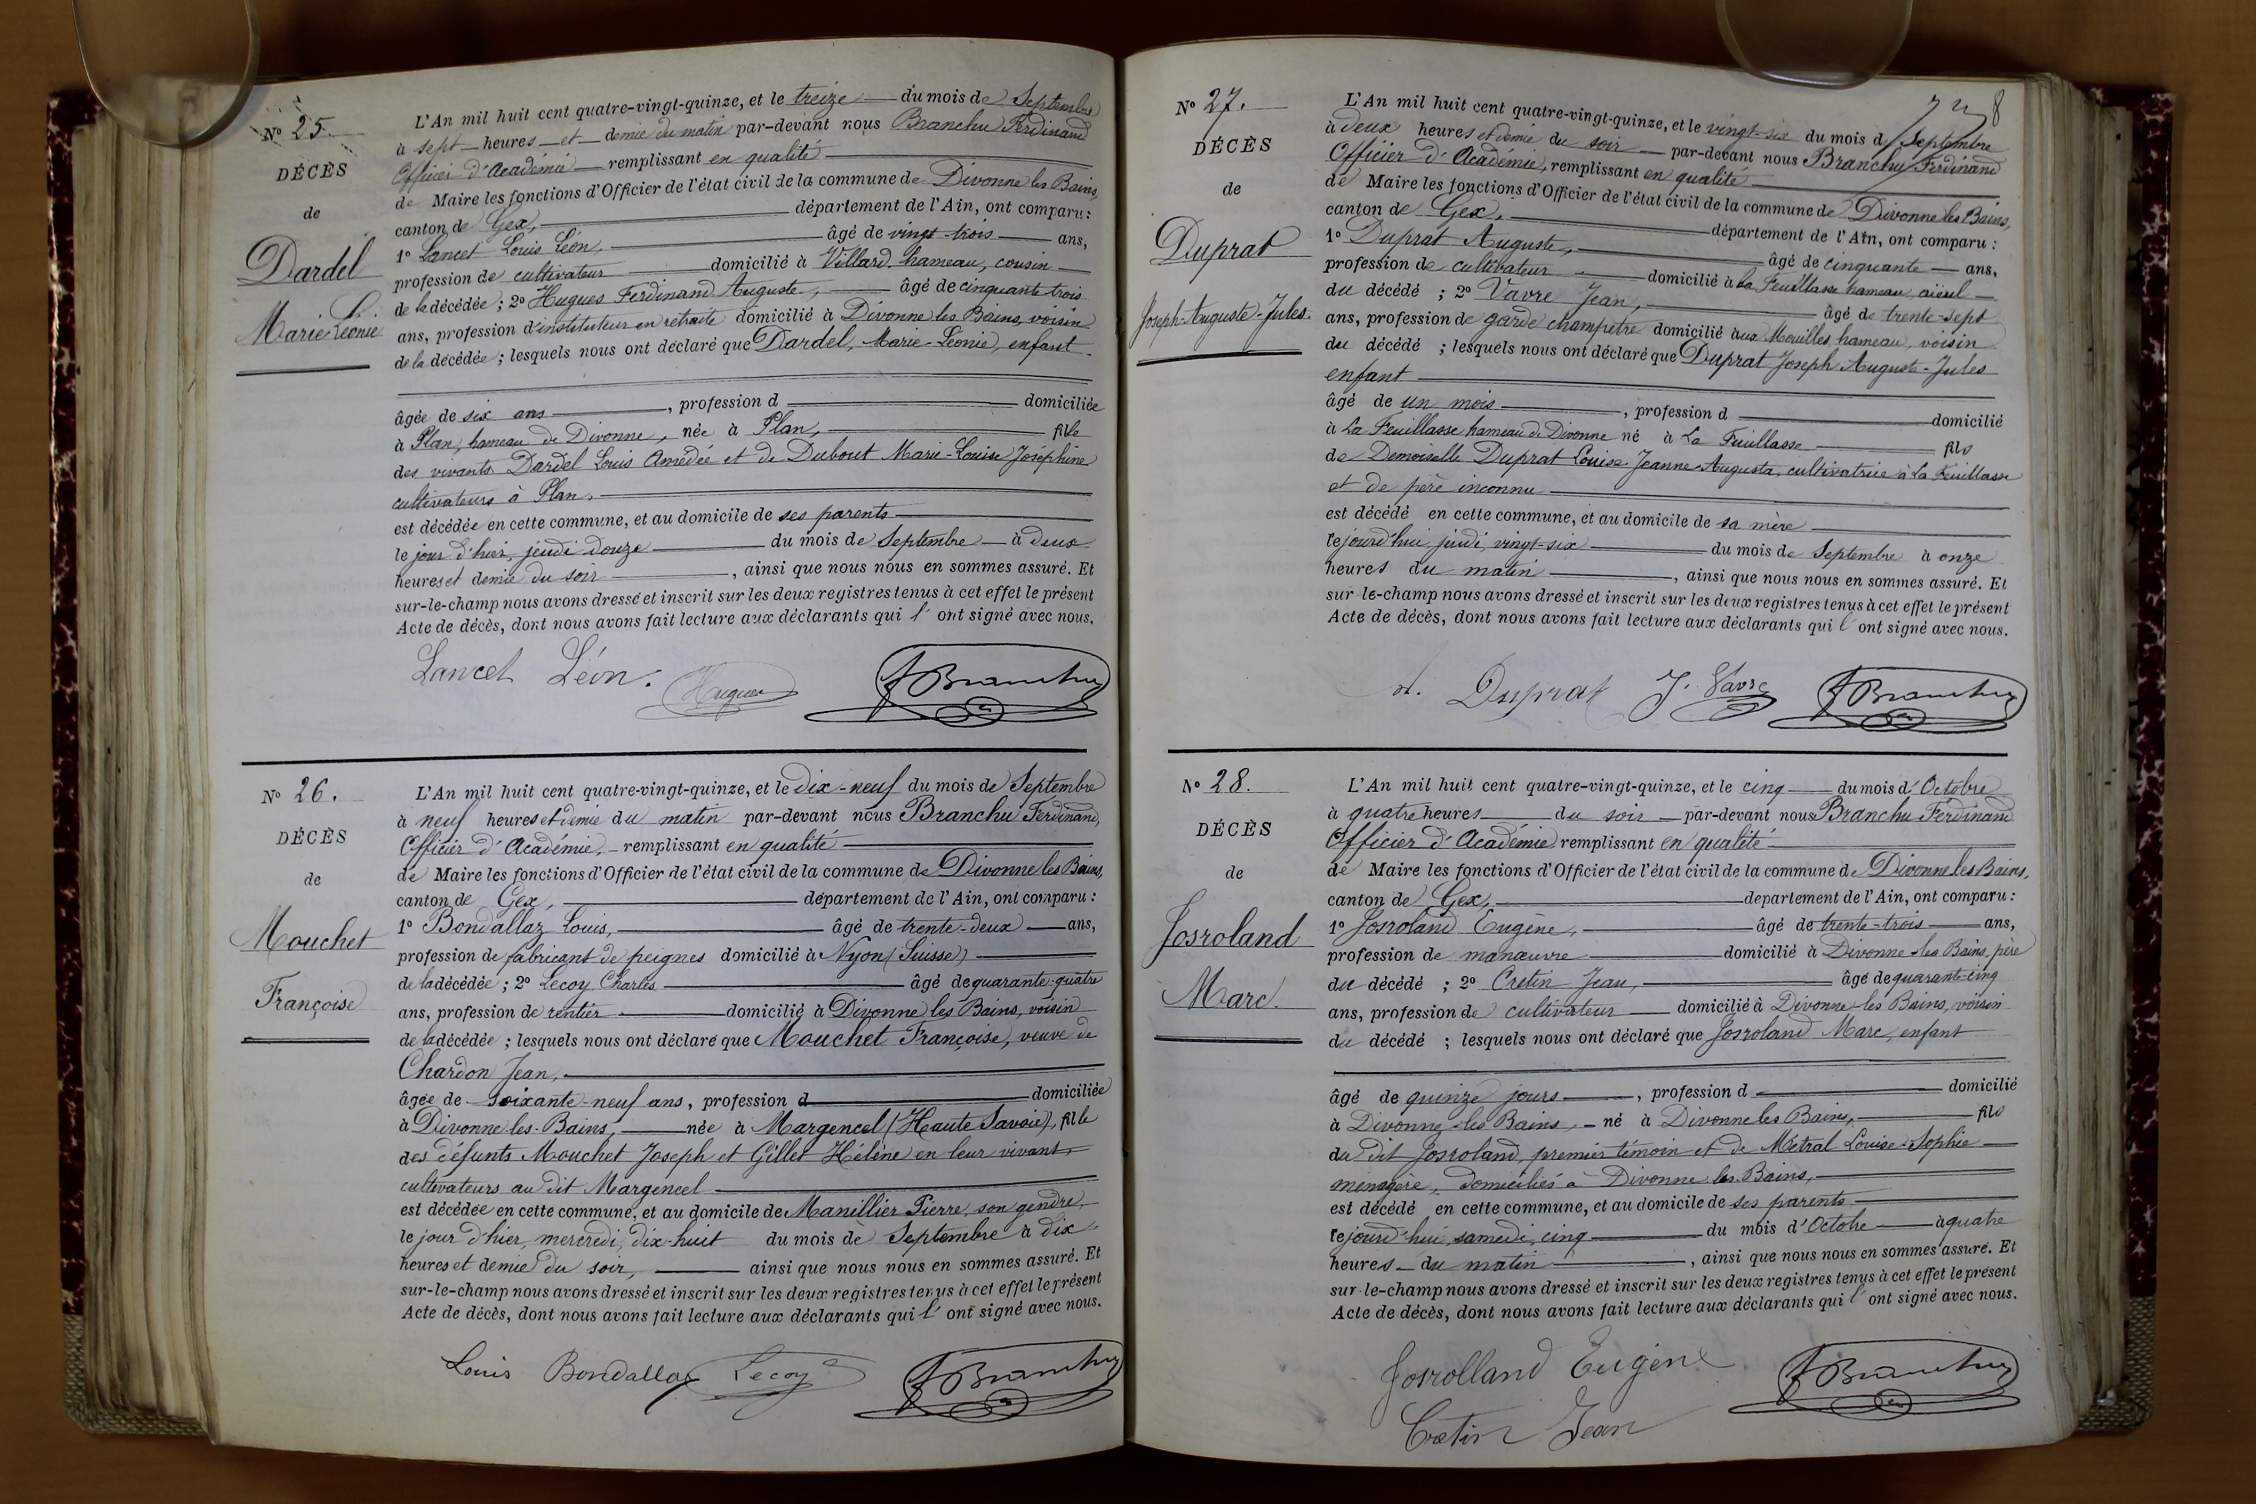 N° 25.
DÉCÈS
de
Dardel
Marie Léonie
L'An mil huit cent quatre-vingt-quinze, et le treize du mois de Septembre
à sept heures et demie du matin par-devant nous Branchu Ferdinand
Officier d'Académie remplissant en qualité
de Maire les fonctions d'Officier de l'état civil de la commune de Divonne les Bains,
canton de Gex, département de l'Ain, ont comparu :
1° Lancet Louis Léon, âgé de vingt trois ans,
profession de cultivateur domicilié à Villard hameau, cousin
de la décédée ; 2° Hugues Ferdinand Auguste, âgé de cinquante trois
ans, profession d'instituteur en retraite domicilié à Divonne les Bains, voisin
de la décédée ; lesquels nous ont déclaré que Dardel, Marie-Léonie, enfant
âgée de six ans, profession d domiciliée
à Plan, hameau de Divonne, née à Plan, fille
des vivants Dardel Louis Amédée et de Dubout Marie-Louise Joséphine
cultivateurs à Plan.
est décédée en cette commune, et au domicile de ses parents
le jour d'hier, jeudi douze du mois de Septembre à deux
heures et demie du soir, ainsi que nous nous en sommes assuré. Et
sur-le-champ nous avons dressé et inscrit sur les deux registres tenus à cet effet le présent
Acte de décès, dont nous avons fait lecture aux déclarants qui l'ont signé avec nous.
Lancet Léon. Hugues FBranchu
N° 26.
DÉCÈS
de
Mouchet
Françoise
L'An mil huit cent quatre-vingt-quinze, et le dix-neuf du mois de Septembre
à neuf heures et demie du matin par-devant nous Branchu Ferdinand,
Officier d'Académie, remplissant en qualité
de Maire les fonctions d'Officier de l'état civil de la commune de Divonne les Bains,
canton de Gex, département de l'Ain, ont comparu :
1° Bondallaz Louis, âgé de trente-deux ans,
profession de fabricant de peignes domicilié à Nyon (Suisse)
de la décédée ; 2° Lecoy Charles âgé de quarante-quatre
ans, profession de rentier domicilié à Divonne les Bains, voisin
de la décédée ; lesquels nous ont déclaré que Mouchet Françoise, veuve de
Chardon Jean,
âgée de soixante-neuf ans, profession d domiciliée
à Divonne-les-Bains, née à Margencel (Haute Savoie), fille
des défunts Mouchet Joseph et Gillet Hélène en leur vivant,
cultivateurs au dit Margencel
est décédée en cette commune, et au domicile de Manillier Pierre, son gendre,
le jour d'hier, mercredi, dix-huit du mois de Septembre à dix
heures et demie du soir, ainsi que nous nous en sommes assuré. Et
sur-le-champ nous avons dressé et inscrit sur les deux registres tenus à cet effet le présent
Acte de décès, dont nous avons fait lecture aux déclarants qui l'ont signé avec nous.
Louis Bondallaz Lecoy FBranchu
N° 27.
DÉCÈS
de
Duprat
Joseph-Auguste-Jules.
L'An mil huit cent quatre-vingt-quinze, et le vingt-six du mois d Septembre
à deux heures et demie du soir par-devant nous Branchu Ferdinand
Officier d'Académie, remplissant en qualité
de Maire les fonctions d'Officier de l'état civil de la commune de Divonne les Bains,
canton de Gex, département de l'Ain, ont comparu :
1° Duprat Auguste, âgé de cinquante ans,
profession de cultivateur domicilié à La Feuillasse hameau, aïeul
du décédé ; 2° Vavre Jean, âgé de trente-sept
ans, profession de garde champêtre domicilié aux Mouilles hameau, voisin
du décédé ; lesquels nous ont déclaré que Duprat Joseph Auguste-Jules
enfant
âgé de un mois, profession d domicilié
à La Feuillasse hameau de Divonne né à La Feuillasse fils
de Demoiselle Duprat Louise Jeanne-Augusta, cultivatrice à La Feuillasse
et de père inconnu
est décédé en cette commune, et au domicile de sa mère
le jourd'hui jeudi, vingt-six du mois de Septembre à onze
heures du matin, ainsi que nous nous en sommes assuré. Et
sur-le-champ nous avons dressé et inscrit sur les deux registres tenus à cet effet le présent
Acte de décès, dont nous avons fait lecture aux déclarants qui l'ont signé avec nous.
Duprat J. Vavre FBranchu
N° 28.
DÉCÈS
de
Josroland
Marc.
L'An mil huit cent quatre-vingt-quinze, et le cinq du mois d'Octobre
à quatre heures du soir par-devant nous Branchu Ferdinand
Officier d'Académie remplissant en qualité
de Maire les fonctions d'Officier de l'état civil de la commune de Divonne les Bains,
canton de Gex, département de l'Ain, ont comparu :
1° Josroland Eugène, âgé de trente-trois ans,
profession de manœuvre domicilié à Divonne-les Bains, père
du décédé ; 2° Cretin Jean, âgé de quarante-cinq
ans, profession de cultivateur domicilié à Divonne les Bains, voisin
du décédé ; lesquels nous ont déclaré que Josroland Marc, enfant
âgé de quinze jours, profession d domicilié
à Divonne-les Bains, né à Divonne les Bains, fils
du dit Josroland, premier témoin et de Métral Louise-Sophie
ménagère, domiciliés à Divonne les Bains,
est décédé en cette commune, et au domicile de ses parents
le jourd'hui, samedi, cinq du mois d'Octobre à quatre
heures du matin, ainsi que nous nous en sommes assuré. Et
sur-le-champ nous avons dressé et inscrit sur les deux registres tenus à cet effet le présent
Acte de décès, dont nous avons fait lecture aux déclarants qui l'ont signé avec nous.
Josrolland Eugène FBranchu
Cretin Jean